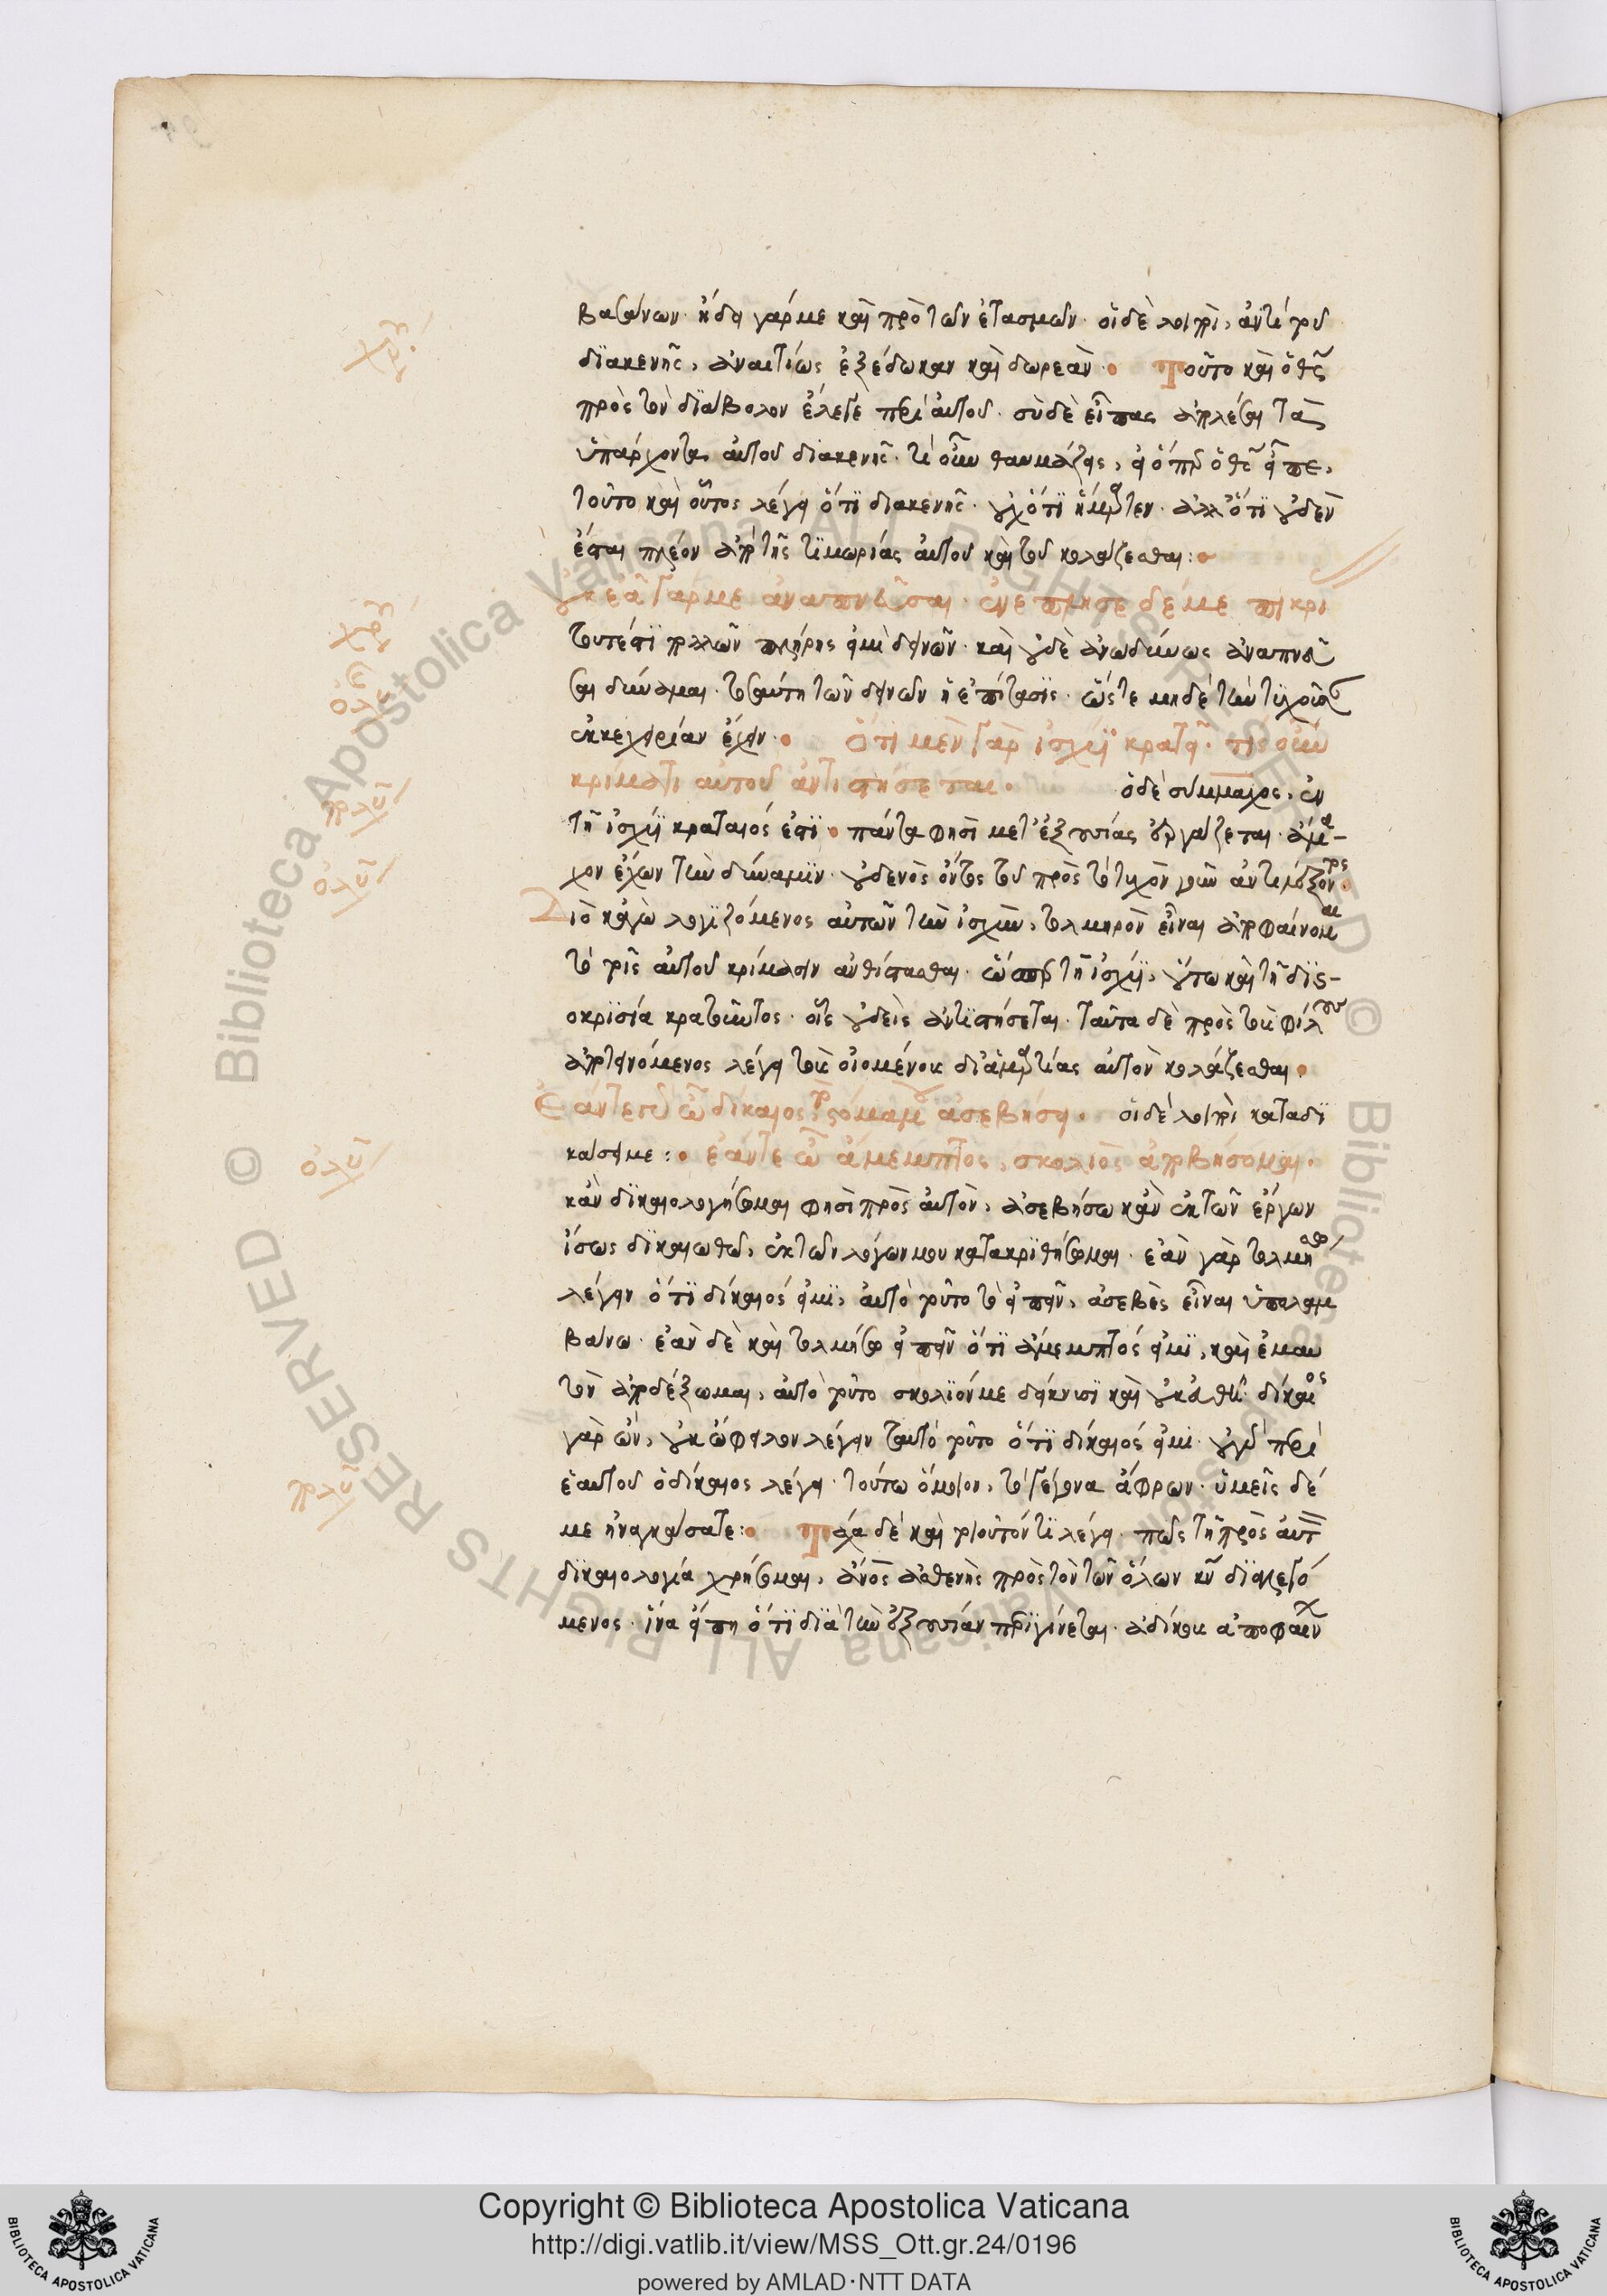 βασάνων· ᾔδει γάρ με καὶ πρὸ τῶν ἐτασμῶν· οἱ δὲ λοιποὶ, ἀντὶ τοῦ
διακενῆς, ἀναιτίως ἐξέδωκαν καὶ δωρεάν· Τοῦτο καὶ ὁ θς
πρὸς τὸν διάβολον ἔλεγε περὶ αὐτοῦ· σὺ δὲ εἶπας ἀπολέσαι τὰ
ὑπάρχοντα αὐτοῦ διακενῆς· τί οὖν θαυμάζεις, εἰ ὅπερ ὁ θς εἶπε,
τοῦτο καὶ οὗτος λέγει ὅτι διακενῆς· οὐχ ὅτι ἥμαρτεν· ἀλλ' ὅτι οὐδὲν
ἔσται πλέον ἀπὸ τῆς τιμωρίας αὐτοῦ καὶ τοῦ κολάζεσθαι:
οὐκ ἐᾷ γάρ με ἀναπνεῦσαι· ἐνέπλησε δέ με πικρι
τουτέστι πολλῶν πλήρης εἰμὶ δεινῶν· καὶ οὐδὲ ἀνωδύνως ἀναπνεῦ
σαι δύναμαι· τοσαύτη τῶν δεινῶν ἡ ἐπίτασις· ὥστε μηδὲ τὴν τυχοῦσ
ἐκεχειρίαν ἔχειν· Ὅτι μὲν γὰρ ἰσχύϊ κρατεῖ· τίς οὖν
κρίματι αὐτοῦ ἀντιστήσεται· ὁ δὲ σύμμαχος, ἐν
τῇ ἰσχύϊ κραταιός ἐστι· πάντα φησὶ μετ' ἐξουσίας ἐργάζεται· ἄμα-
χον ἔχων τὴν δύναμιν· οὐδενὸς ὄντος τοῦ πρὸς τὸ τυχὸν γοῦν ἀντιλέξοντος
Διὸ κἀγὼ λογιζόμενος αὐτοῦ τὴν ἰσχὺν, τολμηρὸν εἶναι ἀποφαίνομαι
τὸ τοῖς αὐτοῦ κρίμασιν ἀνθίστασθαι· ὥσπερ τῇ ἰσχύϊ, οὕτω καὶ τῇ δι-
κρισία κρατοῦντος· οἷς οὐδεὶς ἀντιστήσεται· ταῦτα δὲ πρὸς τοὺς φίλους
ἀποτεινόμενος λέγει τοὺς οἰομένους δι' ἁμαρτίας αὐτὸν κολάζεσθαι·
Ἐάν τε γὰρ ὦ δίκαιος, τὸ στόμα μου ἀσεβήσει· οἱ δὲ λοιποὶ καταδι
κάσει με: ἐάν τε ὦ ἄμεμπτος, σκολιὸς ἀποβήσομαι·
κἂν δικαιολογήσωμαι φησὶ πρὸς αὐτὸν, ἀσεβήσω κἂν ἐκ τῶν ἔργων
ἴσως δικαιωθῶ, ἐκ τῶν λόγων μου κατακριθήσομαι· ἐὰν γὰρ τολμήσω
λέγειν ὅτι δίκαιός εἰμι, αὐτὸ τοῦτο τὸ εἰπεῖν, ἀσεβὲς εἶναι ὑπολαμ
βάνω· ἐὰν δὲ καὶ τολμήσω εἰπεῖν ὅτι ἄμεμπτός εἰμι, καὶ ἐμαυ
τὸν ἀποδέξωμαι, αὐτὸ τοῦτο σκολιόν με δείκνυσι καὶ οὐκ εὐθύ· δίκαιος
γὰρ ὢν, οὐκ ὤφειλον λέγειν ταυτὸ τοῦτο ὅτι δίκαιός εἰμι· οὐ γὰρ περὶ
ἑαυτοῦ ὁ δίκαιος λέγει· τούτω ὅμοιον, τὸ γέγονα ἄφρων· ὑμεῖς δέ
με ἠναγκάσατε: Τάχα δὲ καὶ τοιοῦτόν τι λέγει· πῶς τῇ πρὸς αὐτ
δικαιολογία χρήσομαι, ἄνος ἀσθενὴς πρὸς τὸν τῶν ὅλων κν διαλεγό
μενος· ἵνα εἴπη ὅτι διὰ τὴν ἐξουσίαν περιγίνεται· ἀδίκους ἀποφαίν